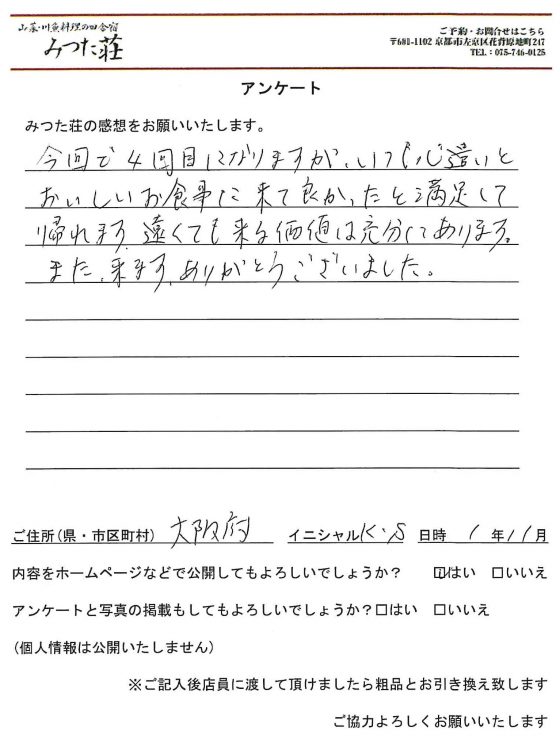 山菜・川魚料理の田舎宿
みつた荘
ご予約・お問合せはこちら
〒601-1102 京都市左京区花背原地町247
TEL：075-746-0125
アンケート
みつた荘の感想をお願いいたします。
今回で4回目になりますが、いつも心遣いと
おいしいお食事に来て良かったと満足して
帰れます。遠くても来る価値は充分にあります。
また、来ます。ありがとうございました。
ご住所（県・市区町村） 大阪府 イニシャル K・S 日時 1年11月
内容をホームページなどで公開してもよろしいでしょうか？ ☑はい □いいえ
アンケートと写真の掲載もしてもよろしいでしょうか？□はい □いいえ
（個人情報は公開いたしません）
※ご記入後店員に渡して頂けましたら粗品とお引き換え致します
ご協力よろしくお願いいたします